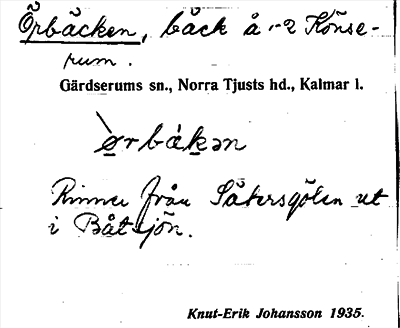 Örbäcken, bäck å -2 Könse-
rum.
Gärdserums sn., Norra Tjusts hd., Kalmar l.
ø̀rbák̲ən
Rinner från Säkersgölen ut
i Båtsjön.
Knut-Erik Johansson 1935.